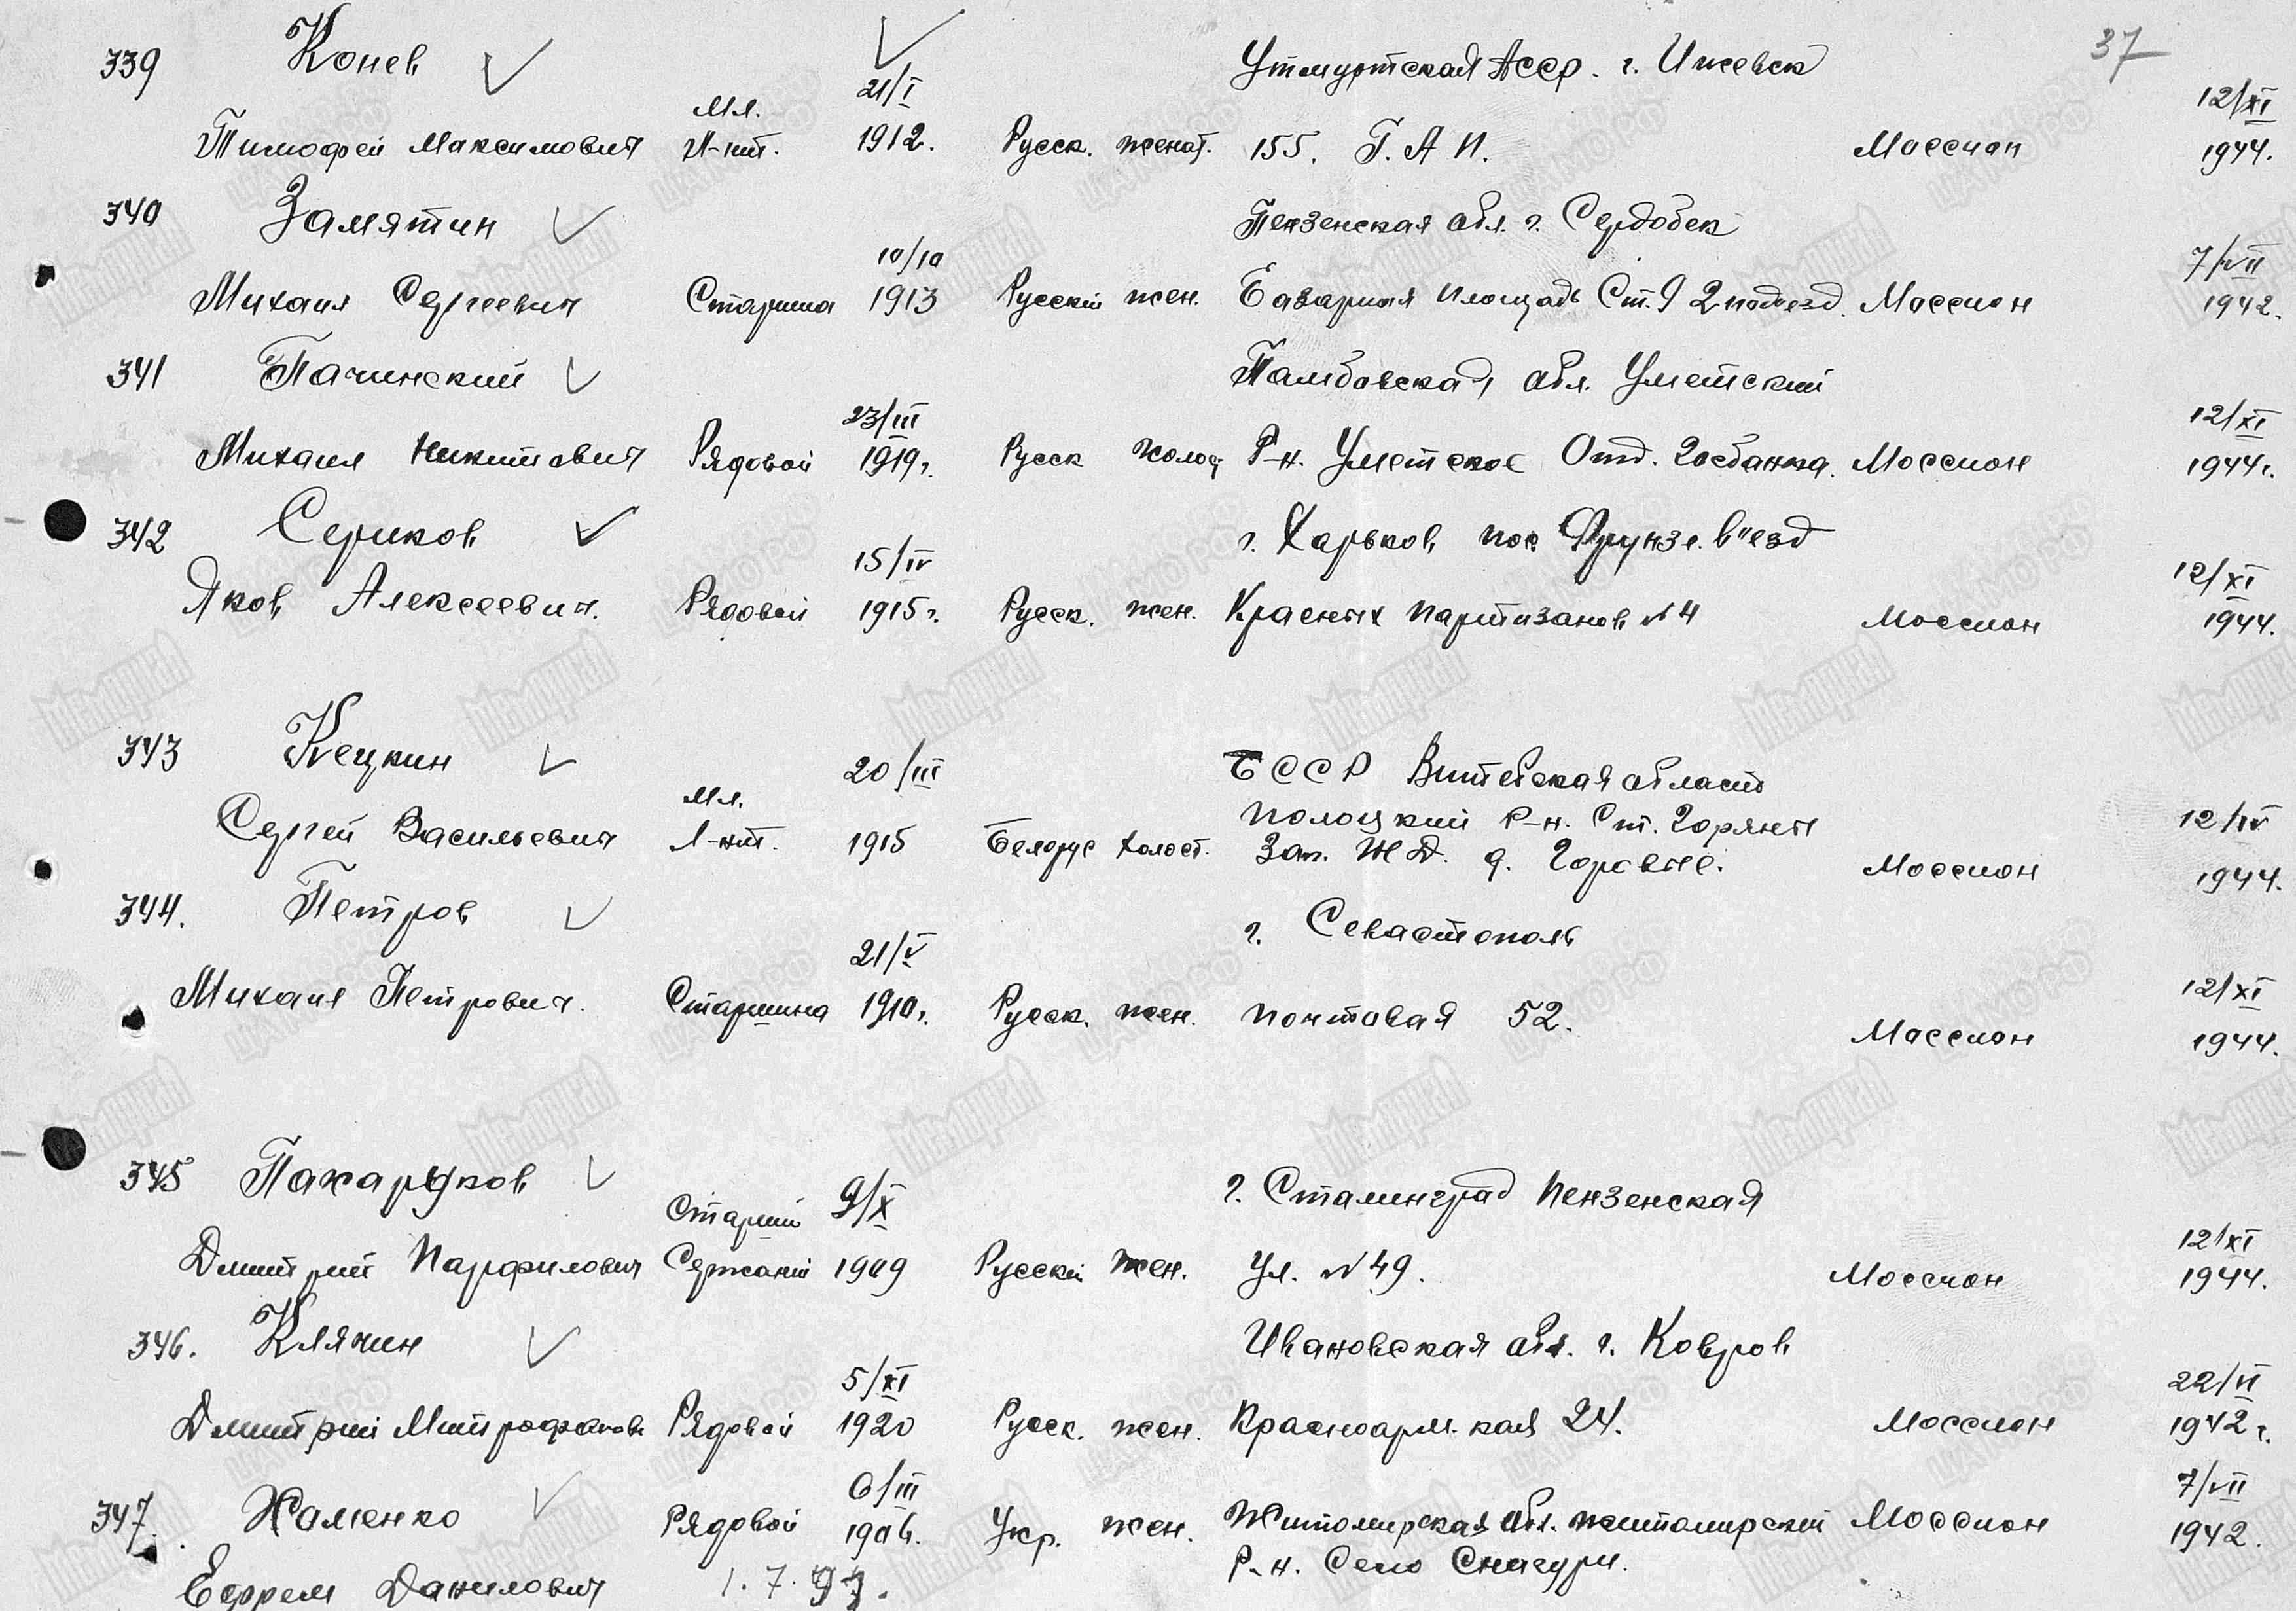 37
339 Конев 21/I Утмуртская Асср. г. Ижевск 12/XI
Тимофей Максимович Мл. Л-нт. 1912. Русск. женат. 155. Г. А И. Моссион 1944.
340 Замятин 10/10 Пензенская обл. г. Сердобск 7/VII
Михаил Сергеевич Старшина 1913 Русский жен. Базарная площадь Ст. 9 2 подъезд. Моссион 1942.
341 Пачинский 23/III Тамбовская обл. Уметский 12/XI
Михаил Никитович Рядовой 1919г. Русск холост Р-н. Уметское Отд. Госбанка. Моссион 1944г.
342 Сериков 15/IV г. Харьков пос. Фрунзе. въезд 12/XI
Яков Алексеевич. Рядовой 1915г. Русск. жен. Красных партизанов № 4 Моссион 1944.
343 Кецкин 20/III БССР Витебская область
Мл. полоцкий Р-н. Ст. Горяны 12/IV
Сергей Васильевич Л-нт. 1915 Белорус холост. Зап. Ж Д. д. Моссион 1944.
344. Петров 21/V г. Севастополь 12/XI
Михаил Петрович. Старшина 1910г. Русск. жен. почтовая 52. Моссион 1944.
345 Пахаруков Старший 9/X г. Сталинград Пензенская 12/XI
Дмитрий Парфилович Сержант 1909 Русский жен. Ул. № 49. Моссион 1944.
346. Клячин 5/XI Ивановская обл. г. Ковров 22/VI
Дмитрий Митрофанов Рядовой 1920 Русск. жен. Красноарм. кая 24. Моссион 1942г.
347. Хоменко Рядовой 6/III 1906. Укр. жен. Житомирская обл. житомирский Моссион 7/VII 1942.
Ефрем Данилович 1.7. Р-н. Село Снигури.
Мемориал
ЦАМО РФ